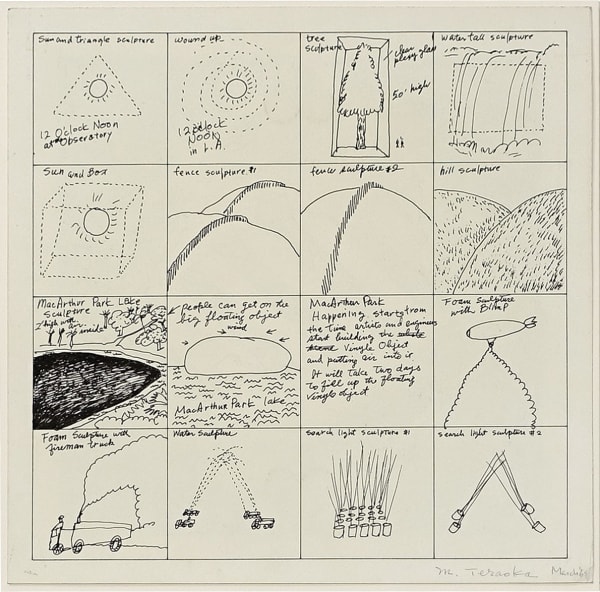 Sun and triangle sculpture
12 O'clock Noon
at Observatory
wound up
12 o'clock
NOON
in L.A.
tree
sculpture
clear
plexy glass
50' high
Water fall sculpture
Sun and Box
fence sculpture #1
fence sculpture #2
hill sculpture
MacArthur Park Lake
sculpture
high with
air
inside
people can get on the
big floating object
MacArthur Park Lake
MacArthur Park
Happening starts from
the time artists and engineers
start building the
Vinyle Object
and putting air into it
It will take two days
To fill up the floating
Vinyle object
Foam Sculpture
with Blimp
Foam Sculpture with
fireman truck
Water Sculpture
search light sculpture #1
search light sculpture #2
M. Teraoka